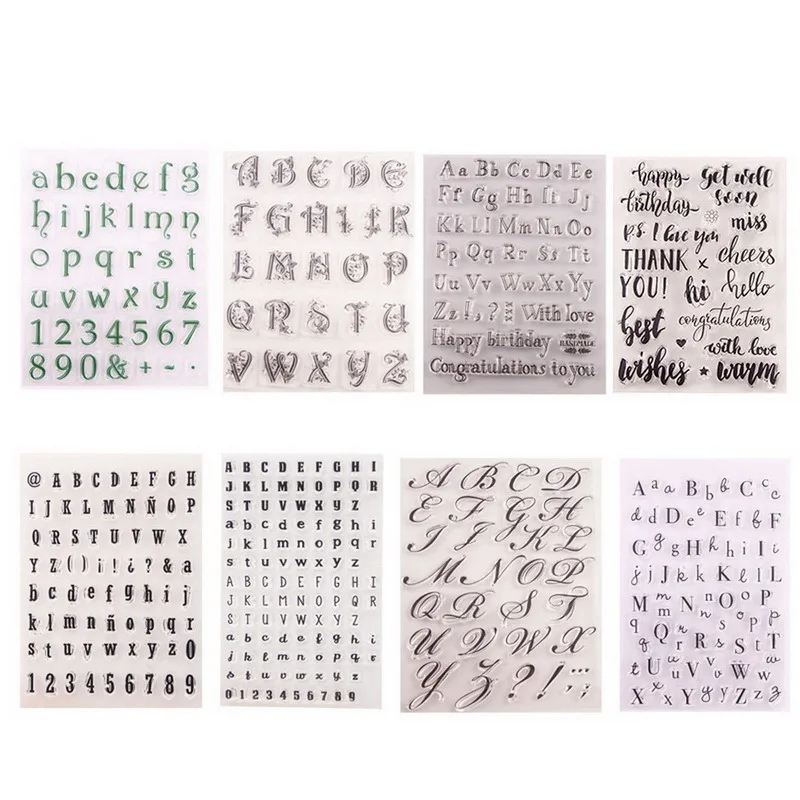 a b c d e f g
h i j k l m n
o p q r s t
u v w x y z
1 2 3 4 5 6 7
8 9 0 & + - .
A B C D E
F G H I J K
L M N O P
Q R S T U
V W X Y Z
Aa Bb Cc Dd Ee
Ff Gg Hh Ii Jj
Kk Ll Mm Nn Oo
Pp Qq Rr Ss Tt
Uu Vv Ww Xx Yy
Zz ! , ? With love
Happy birthday HANDMADE
Congratulations to you
happy get well
birthday soon
miss
P.S. I love you
THANK x cheers
YOU! hi hello
best congratulations
with love
wishes warm
@ A B C D E F G H
I J K L M N Ñ O P
Q R S T U V W X
Y Z ( ) ¡ ! ¿ ? & a
b c d e f g h i j
k l m n ñ o p q r
s t u v w x y z 0
1 2 3 4 5 6 7 8 9
A B C D E F G H I
J K L M N O P Q R
S T U V W X Y Z
a b c d e f g h i
j k l m n o p q r
s t u v w x y z
A B C D E F G H I
J K L M N O P Q R
S T U V W X Y Z
a b c d e f g h i
j k l m n o p q r
s t u v w x y z
0 1 2 3 4 5 6 7 8 9
A B C D
E F G H
I J K L
M N O P
Q R S T
U V W X
Y Z ? ! . , : ;
A a a B B b b C c c
d d D e e E f f F
G g g H h h I i i
j j J k k K l l L
M m m N n n O o o P p p
Q q q R r r S s s T t
t U u u V v v W w w
X x x Y y y Z z z